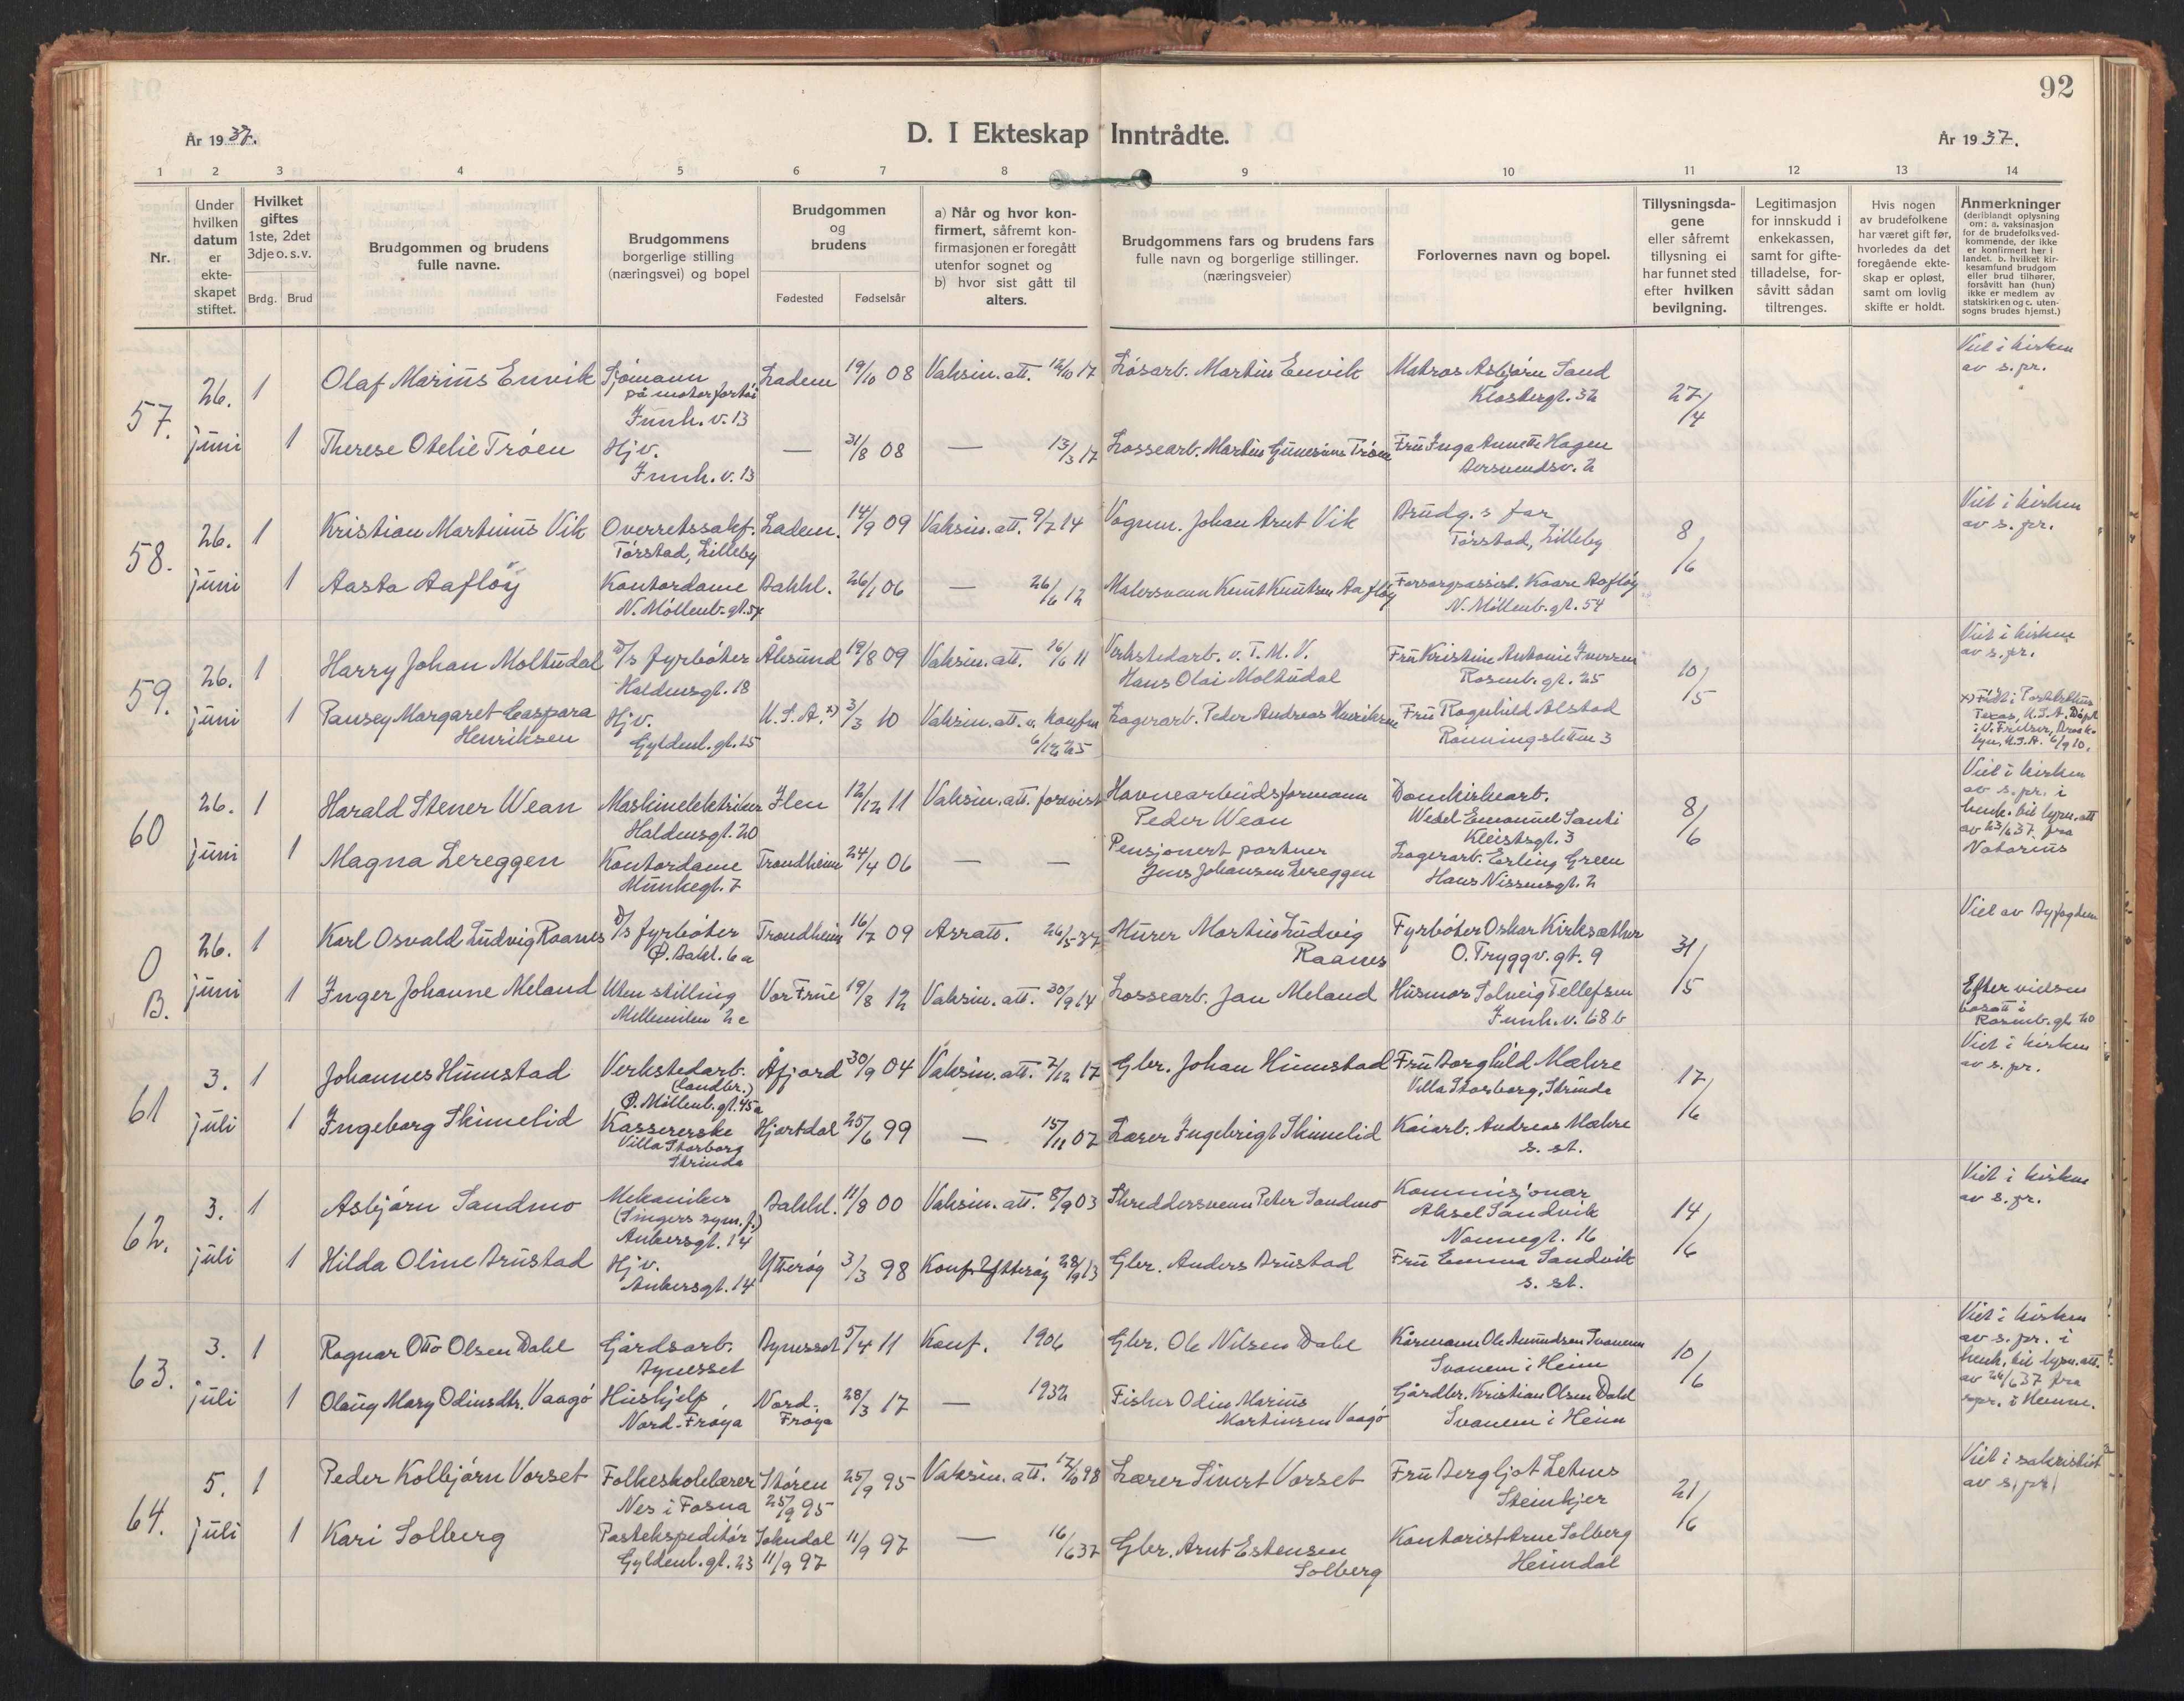 92
År 1937.
D. I Ekteskap Inntrådte.
År 1937.
1 2 3 4 5 6 7 8 9 10 11 12 13 14
Nr.
Under hvilken datum er ekte-skapet stiftet.
Hvilket giftes 1ste, 2det 3dje o. s. v.
Brdg. Brud
Brudgommen og brudens fulle navne.
Brudgommens borgerlige stilling (næringsvei) og bopel
Brudgommen og brudens
Fødested Fødselsår
a) Når og hvor kon-firmert, såfremt kon-firmasjonen er foregått utenfor sognet og b) hvor sist gått til alters.
Brudgommens fars og brudens fars fulle navn og borgerlige stillinger. (næringsveier)
Forlovernes navn og bopel.
Tillysningsda-gene eller såfremt tillysning ei har funnet sted efter hvilken bevilgning.
Legitimasjon for innskudd i enkekassen, samt for gifte-tilladelse, for-såvitt sådan tiltrenges.
Hvis nogen av brudefolkene har været gift før, hvorledes da det foregående ekte-skap er opløst, samt om lovlig skifte er holdt.
Anmerkninger (deriblandt oplysning om: a. vaksinasjon for de brudefolks ved-kommende, der ikke er konfirmert her i landet. b. hvilket kir-kesamfund brudgom eller brud tilhører, forsåvitt han (hun) ikke er medlem av statskirken og c. uten-sogns brudes hjemst.)
57. 26. juni
1 Olaf Marius Envik Sjømann på motorfartøi Innh. v. 13 Ladem 19/10 08 Vaksin. att. 12/10 17 Løsarb. Martin Envik Matros Asbjørn Sand Klostergt. 32 27/4 Viet i kirken av s. pr.
1 Therese Otelie Trøen Hjv. Innh. v. 13 — 31/8 08 — 13/3 17 Lossearb. Martin Gunerius Trøen Fru Inga Annette Hagen
58. 26. juni
1 Kristian Martinus Vik Overretssakf. Tørstad, Lilleby Ladem. 14/9 09 Vaksin. att. 9/7 14 Vognm. Johan Arnt Vik Brudg.s far Tørstad, Lilleby 8/6 Viet i kirken av s. pr.
1 Aasta Aafløy Kontordame N. Møllenb. gt. 54 Bakkl. 26/1 06 — 26/6 12 Malersvenn Knut Knutsen Aafløy Forsorgsassist. Kaare Aafløy N. Møllenb. gt. 54
59. 26. juni
1 Harry Johan Moltudal D/s fyrbøter Haldensgt. 18 Ålesund 19/8 09 Vaksin. att. 16/6 11 Verkstedarb. v. T. M. V. Hans Olai Moltudal Fru Kristine Antonie Iversen Rosenb. gt. 25 10/5 Viet i kirken av s. pr.
1 Pansey Margaret Caspara Henriksen Hjv. Gyldenl. gt. 25 U. S. A. x) 3/3 10 Vaksin. att. u. Konfm 6/12 25 Lagerarb. Peder Andreas Henriksen Fru Ragnhild Alstad Rønningsletten 3 x) Født i Texas, U. S. A. Døpt Brook-lyn, U. S. A. 6/9 10.
60 26. juni
1 Harald Stener Wean Maskinelektriker Haldensgt. 20 Ilen 12/12 11 Vaksin. att. forevist Havnearbeidsformann Peder Wean Domkirkearb. Wedel Emanuel Santi Kleistsgt. 3 8/6 Viet i kirken av s. pr. i henh. til lysn. att av 23/6 37 fra Notarius
1 Magna Lereggen Kontordame Munkegt. 7 Trondheim 24/4 06 — — Pensjonert portner Jens Johansen Lereggen Lagerarb. Erling Green Hans Nissensgt. 2
0 B. 26. juni
1 Karl Osvald Ludvig Raanes D/s fyrbøter Ø. Bakl. 6a Trondheim 16/7 09 Asratt. 26/5-37 Murer Martin Ludvig Raanes Fyrbøter Oskar Kirksæther O. Tryggv. gt. 9 31/5 Viet av Byfogden
1 Inger Johanne Meland Uten stilling Mellemilen 2c Vor Frue 19/8 12 Vaksin. att. 30/9 14 Lossearb. Jan Meland Husmor Solveig Tellefsen Innh. v. 68 b Efter vielsen bosatt i Rosenb. gt. 20
61 3. juli
1 Johannes Humstad Verkstedarb. (landbr.) Ø. Møllenb. gt. 45a Åfjord 30/9 04 Vaksin. att. 7/12 17 Gbr. Johan Humstad Fru Borghild Mæhre Villa Storborg, Strinda 17/6 Viet i kirken av s. pr.
1 Ingeborg Skimelid Kassererske Villa Storborg Strinda Hjartdal 25/6 99 — 15/11 07 Lærer Ingebrigt Skimelid Kaiarb. Andreas Mæhre s. st.
62. 3. juli
1 Asbjørn Sandmo Mekaniker (Singers sym. f.) Ankersgt. 14 Bakkl. 11/8 00 Vaksin. att. 8/9 03 Skreddersvenn Peter Sandmo Kommisjonær Aksel Sandvik Nonnegt. 16 14/6 Viet i kirken av s. pr.
1 Hilda Oline Brustad Hjv. Ankersgt. 14 Ytterøy 3/3 98 Konf. Ytterøy 28/9 13 Gbr. Anders Brustad Fru Emma Sandvik s. st.
63. 3. juli
1 Ragnar Otto Olsen Dahl Gårdsarb. Bynesset Bynesset 5/4 11 Konf. 1906 Gbr. Ole Nilsen Dahl Kårmann Ole Amundsen Svanem Svanem i Heim 10/6 Viet i kirken av s. pr. i henh. til lysn. att. av 26/6 37 fra spr. i Hemne.
1 Olaug Mary Odinsdtr. Vaagø Hushjelp Nord-Frøya Nord-Frøya 28/3 17 — 1932 Fisker Odin Marius Martinsen Vaagø Gårdbr. Kristian Olsen Dahl Svanem i Heim
64. 5. juli
1 Peder Kolbjørn Vorset Folkeskolelærer Nes i Fosna Støren 25/9 95 25/9 95 Vaksin. att. 17/10 98 Lærer Sivert Vorset Fru Bergljot Lehns Steinkjer 21/6 Viet i sakristiet av s. pr.
1 Kari Solberg Postekspeditør Gyldenl. gt. 23 Sokndal 11/9 97 11/9 97 — 16/6 37 Gbr. Arnt Estensen Solberg Kontorist Arne Solberg Heimdal